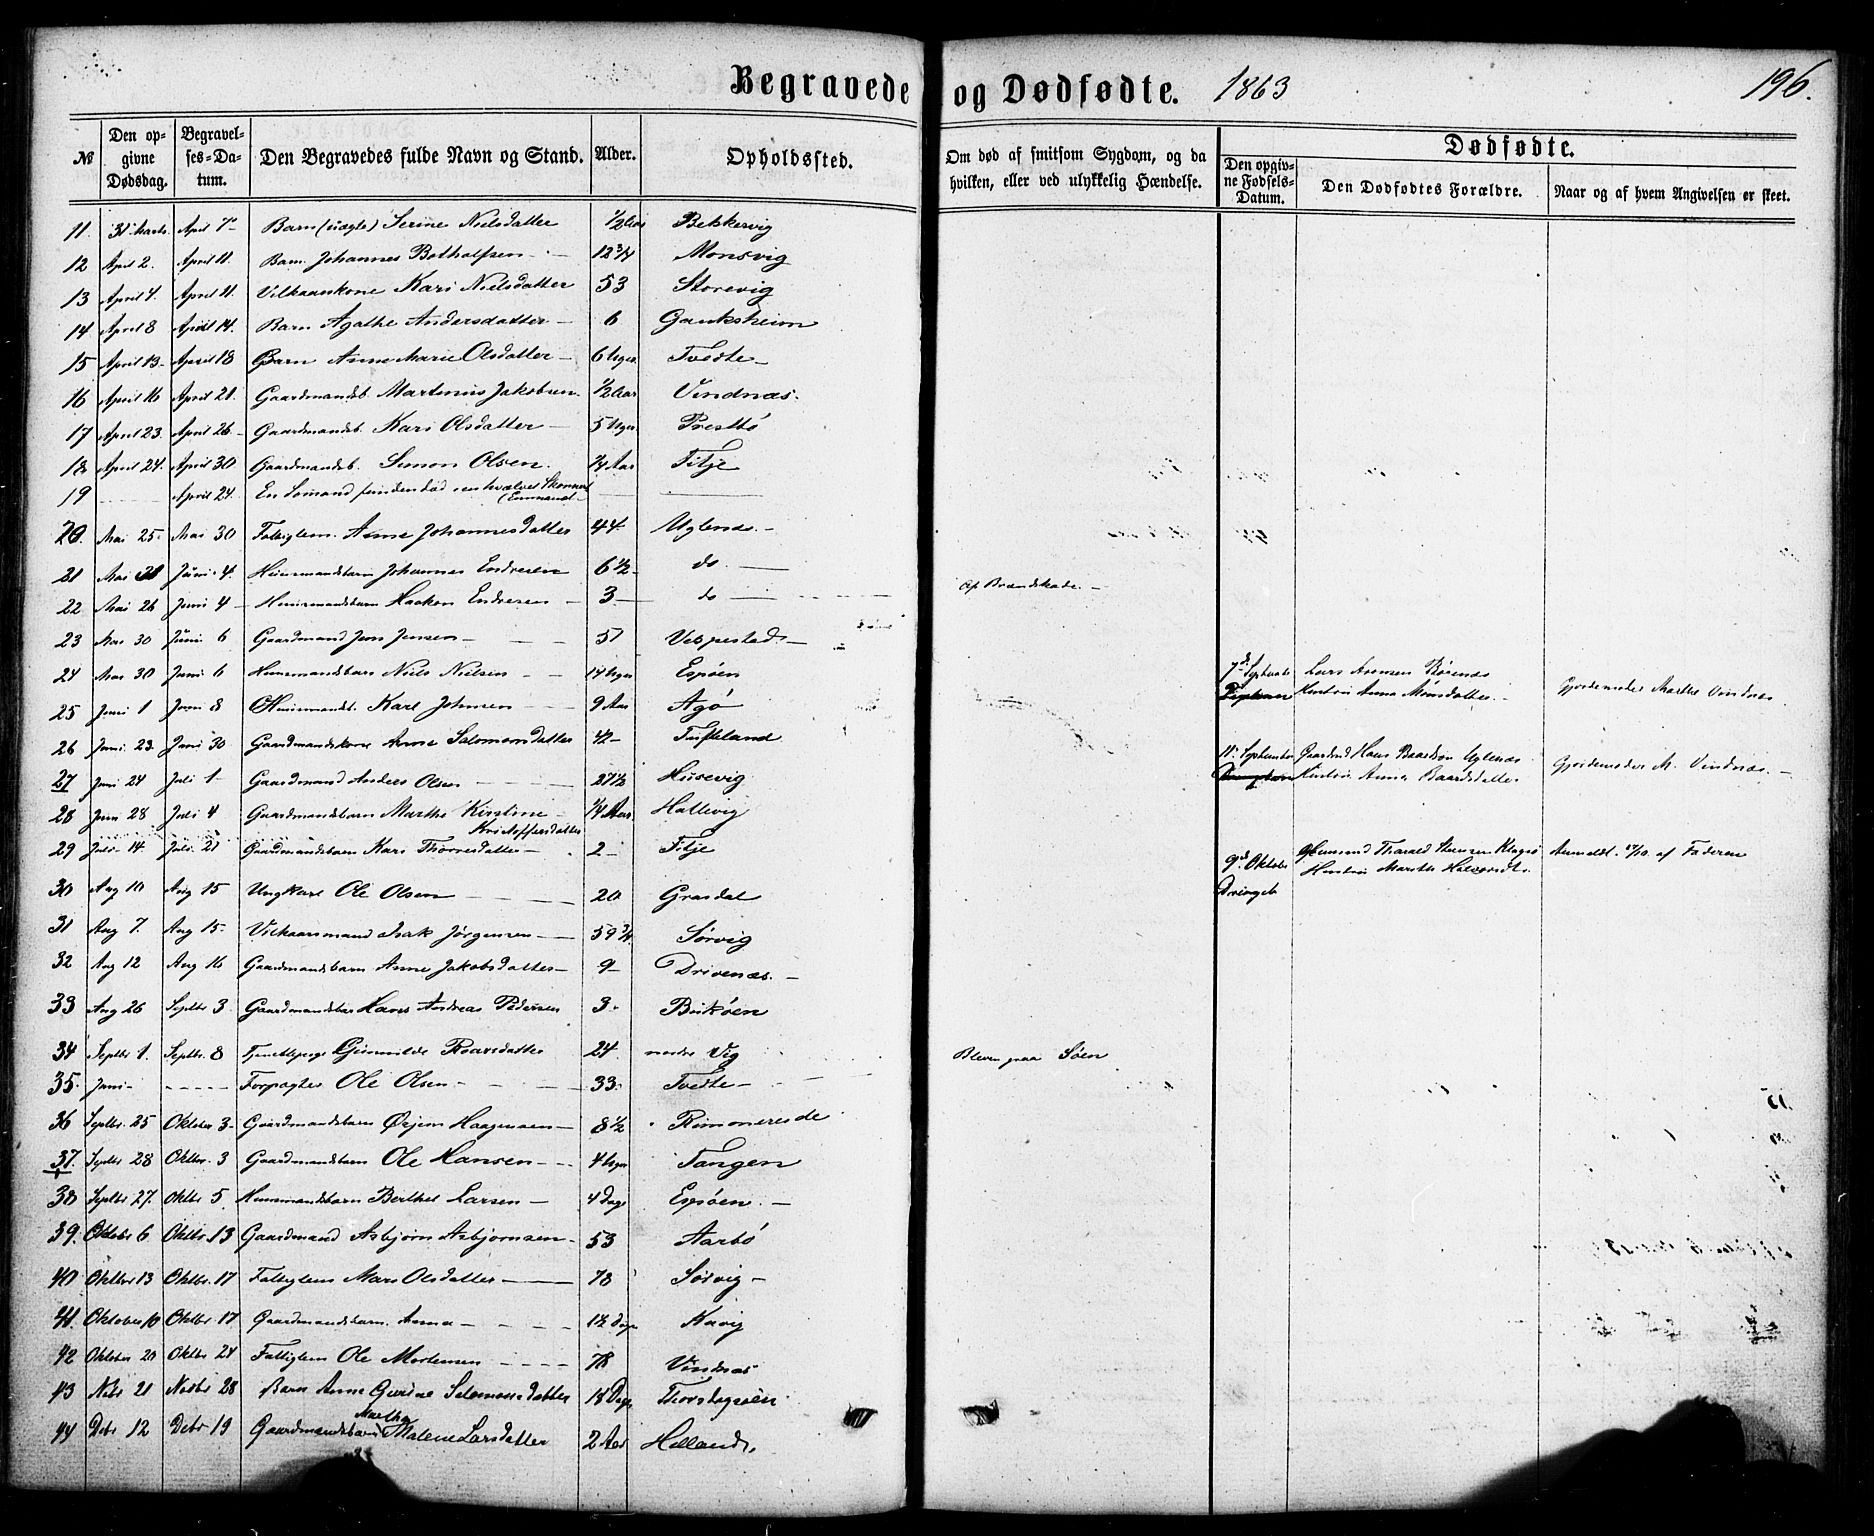 Begravede og Dødfødte. 1863 196.
№ Den opgivne Dødsdag. Begravelses-Datum. Den Begravedes fulde Navn og Stand. Alder. Opholdssted. Om død af smitsom Sygdom, og da hvilken, eller ved ulykkelig Hændelse. Dødfødte. Den opgivne Fødsels-Datum. Den Dødfødtes Forældre. Naar og af hvem Angivelsen er skeet.
11. 31 Marts April 7 Barn (uægte) Serine Nielsdatter 1/2 Aar Bekkervig
12 April 2. April 11. Barn Johannes Botholfsen 12 3/4 Monsvig
13 April 4. April 11. Vilkaarskone Kari Nielsdatter 53 Storevig
14 April 8 April 14. Barn Agathe Andersdatter – 6 Gauksheim
15 April 13 April 18 Barn Anne Marie Olsdatter – 6 Uger Tvedte –
16 April 16 April 21. Gaardmandsb. Martinus Jakobsen. 1/2 Aar Vindnæs.
17 April 23. April 26 Gaardmandsb. Kari Olsdatter – 5 Uger Prestbø
18 April 24. April 30 Gaardmandsb. Simon Olsen. 1/4 Aar Fitje
19 April 24. En Sømand funden død
20. Mai 25. Mai 30 Fattiglem. Anne Johannesdatter 44. Uglenæs. –
21 Mai 21 Juni 4. Huusmandsbarn Johannes Endresen 6 1/2 do –
22 Mai 26 Juni 4 Huusmandsbarn Haakon Endresen – 3 – do – Af Brandskade. –
23 Mai 30 Juni 6 Gaardmand Jens Jensen – 51 Vespestad –
24 Mai 30 Juni 6 Huusmandsbarn Niels Nielsen – 14 Uger Espøen 7 Septembr Lars
25 Juni 1 Juni 8 Huusmandsb. Karl Johnsen – 9 Aar Agø Hustru Anna Monsdatter. Gjordemoder Marthe Vindnæs
26 Juni 23 Juni 30 Gaardmandskone Anne Salomonsdatter 42 – Tufteland
27 Juni 24 Juli 1 Gaardmand Anders Olsen 27 1/2 Husevig 11. September Gaardmd Hans Baardsen Uglenæs Hustru Anna Baardsdatter Gjordemoder M. Vindnæs. –
28 Juni 28 Juli 4 Gaardmandsbarn Marthe Kirstine Kristoffersdatter 1/4 Aar Hallevig
29 Juli 14. Juli 21 Gaardmandsbarn Kari Thorresdatter 2 – Fitje
30 Aug 10 Aug 15 Ungkarl Ole Olsen 20 Grasdal 9. Oktober Drengeb. Huusmd Tharald Hustru Marthe Anmeldt af Faderen
31 Aug 7. Aug 15. Vilkaarsmand Isak Jørgensen 59 3/4 Sørvig
32 Aug 12 Aug 16 Gaardmandsbarn Anne Jakobsdatter – 9 – Drivenæs. –
33 Aug 26 Septbr 3 Gaardmandsbarn Hans Andreas Pedersen 3. Birkøen
34 Septbr 1. Septbr. 8 Tjenestepige Gunnilde Roarsdatter 24. nedre Vig
35. Juni – Forpagter Ole Olsen – 33. Tvedte – Bleven paa Søen
36 Septbr. 25 Oktober 3 Gaardmandsbarn Ørjen Haagensen – 8 1/2 Rimmereide
37. Septbr 28 Oktbr. 3 Gaardmandsbarn Ole Hansen – 4 Uger Tangen
38 Septbr 27. Oktbr 5. Huusmandsbarn Berthel Larsen – 4 Dage Espøen. –
39. Oktober 6 Oktbr. 13 Gaardmand Asbjørn Asbjørnsen – 53 Aarbø
40 Oktbr 13 Oktbr. 17 Fattiglem Mari Olsdatter – 78 Sørvig –
41. Oktober 10 Oktbr 17 Gaardmandsbarn. Anna – 12 Dage Kavig
42 Oktober 20 Oktbr 24 Fattiglem Ole Mortensen 78 Vindnæs
43 Nobr 21 Novbr 28 Barn Anne Gurine Salomonsdatter 18 Dage Thorsdagsøen
44 Debr 12 Debr 19 Gaardmandsbarn Martha Malene Larsdatter 2 Aar Holland.